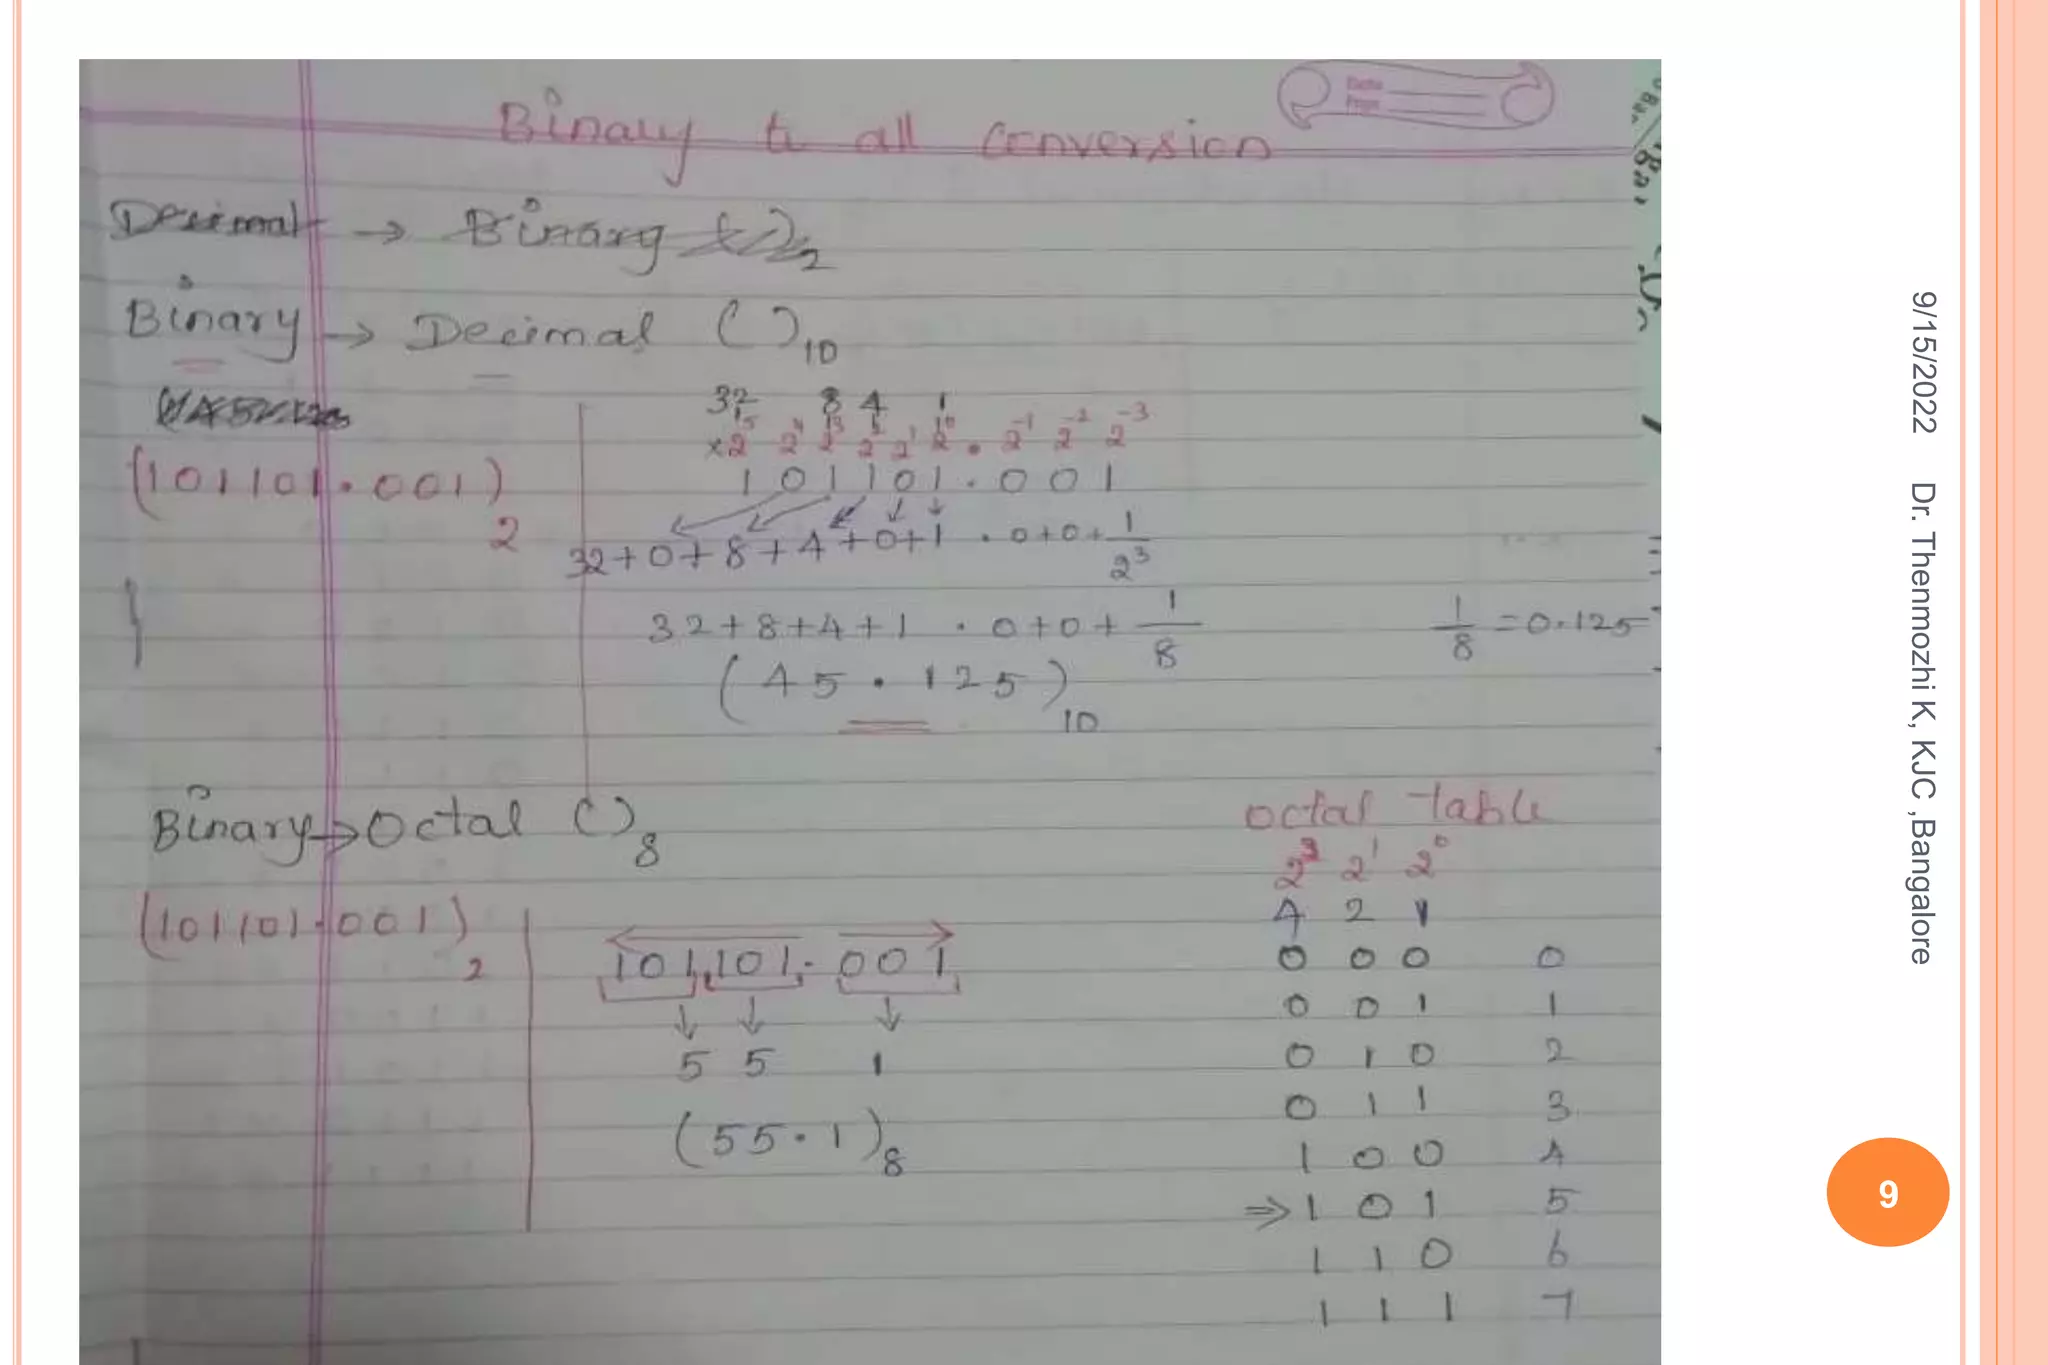 Date
Page
Binary to all conversion
Decimal → Binary ( )₂
Binary → Decimal ( )₁₀
32 8 4 1
×2⁵ 2⁴ 2³ 2² 2¹ 2⁰ . 2⁻¹ 2⁻² 2⁻³
(101101.001)₂
1 0 1 1 0 1 . 0 0 1
32+0+8+4+0+1 . 0+0+1/2³
32+8+4+1 . 0+0+1/8
1/8 = 0.125
(45.125)₁₀
Binary → Octal ( )₈
(101101.001)₂
101,101.001
5 5 1
(55.1)₈
Octal Table
2² 2¹ 2⁰
4 2 1
0 0 0 0
0 0 1 1
0 1 0 2
0 1 1 3
1 0 0 4
⇒ 1 0 1 5
1 1 0 6
1 1 1 7
9/15/2022 Dr. Thenmozhi K, KJC ,Bangalore
9